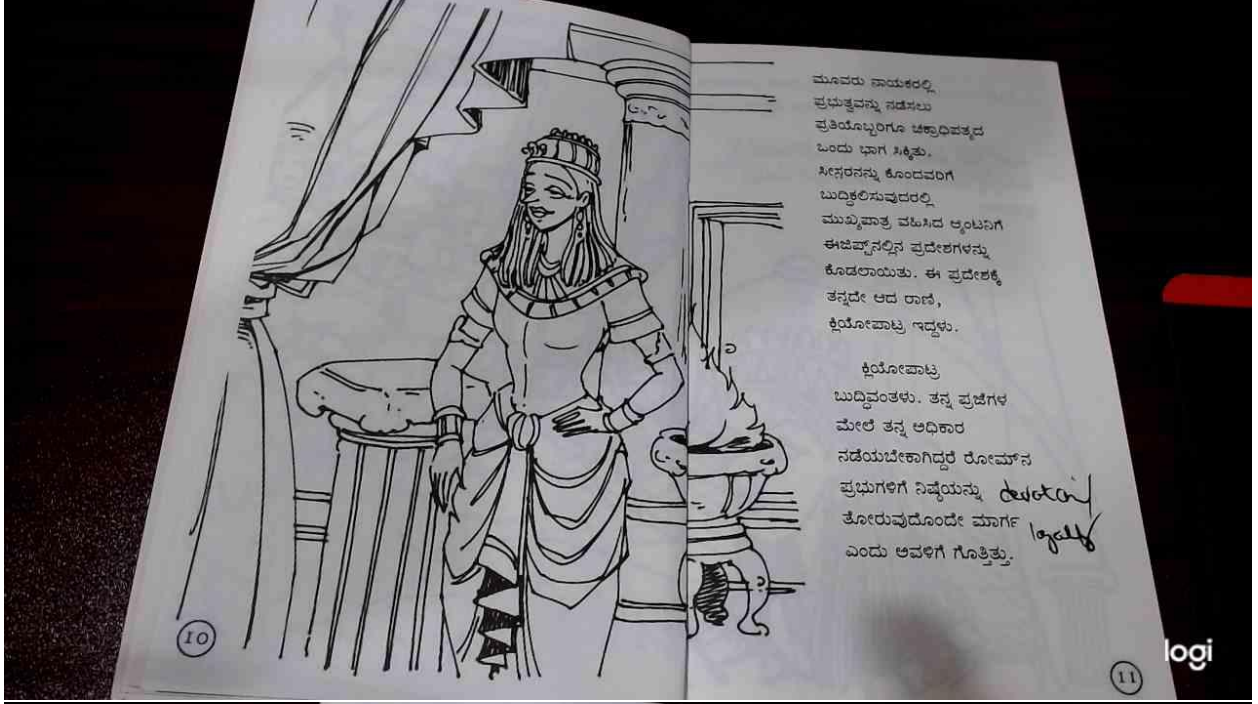 ಮೂವರು ನಾಯಕರಲ್ಲಿ
ಪ್ರಭುತ್ವವನ್ನು ನಡೆಸಲು
ಪ್ರತಿಯೊಬ್ಬರಿಗೂ ಚಕ್ರಾಧಿಪತ್ಯದ
ಒಂದು ಭಾಗ ಸಿಕ್ಕಿತು.
ಸೀಸ಼ರನನ್ನು ಕೊಂದವರಿಗೆ
ಬುದ್ಧಿಕಲಿಸುವುದರಲ್ಲಿ
ಮುಖ್ಯಪಾತ್ರ ವಹಿಸಿದ ಆ್ಯಂಟನಿಗೆ
ಈಜಿಪ್ಟ್‌ನಲ್ಲಿನ ಪ್ರದೇಶಗಳನ್ನು
ಕೊಡಲಾಯಿತು. ಈ ಪ್ರದೇಶಕ್ಕೆ
ತನ್ನದೇ ಆದ ರಾಣಿ,
ಕ್ಲಿಯೋಪಾಟ್ರ ಇದ್ದಳು.
ಕ್ಲಿಯೋಪಾಟ್ರ
ಬುದ್ಧಿವಂತಳು. ತನ್ನ ಪ್ರಜೆಗಳ
ಮೇಲೆ ತನ್ನ ಅಧಿಕಾರ
ನಡೆಯಬೇಕಾಗಿದ್ದರೆ ರೋಮ್‌ನ
ಪ್ರಭುಗಳಿಗೆ ನಿಷ್ಠೆಯನ್ನು
ತೋರುವುದೊಂದೇ ಮಾರ್ಗ loyalty
ಎಂದು ಅವಳಿಗೆ ಗೊತ್ತಿತ್ತು.
10
11
logi